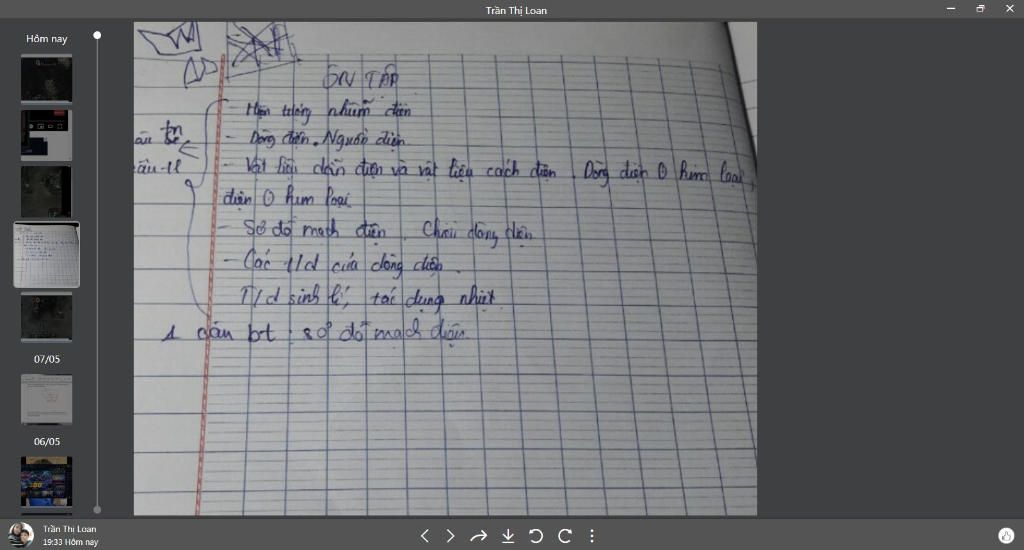 Trần Thị Loan
Hôm nay
ÔN TẬP
Hiện tượng nhiễm điện
- Dòng điện. Nguồn điện
- Vật liệu dẫn điện và vật liệu cách điện. Dòng điện kim loại
điện kim loại
- Sơ đồ mạch điện. Chiều dòng điện
- Các t/d của dòng điện.
T/d sinh lí, tác dụng nhiệt
1 câu bt: sơ đồ mạch điện.
07/05
06/05
Trần Thị Loan
19:33 Hôm nay